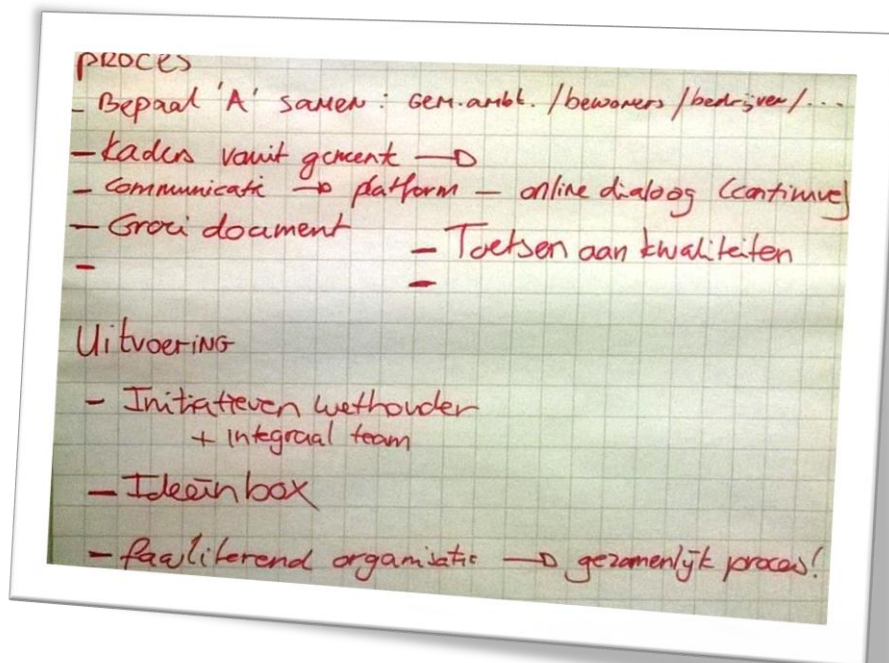 PROCES
- Bepaal 'A' samen: Gem.ambt. / bewoners / bedrijven / ...
- kaders vanuit gemeent →
- communicatie → platform - online dialoog (continue)
- Groei document
- Toetsen aan kwaliteiten
-
-
UitvoeriNG
- Initiatieven wethouder
+ integraal team
- Ideeën box
- faciliterend organisatie → gezamenlijk proces!